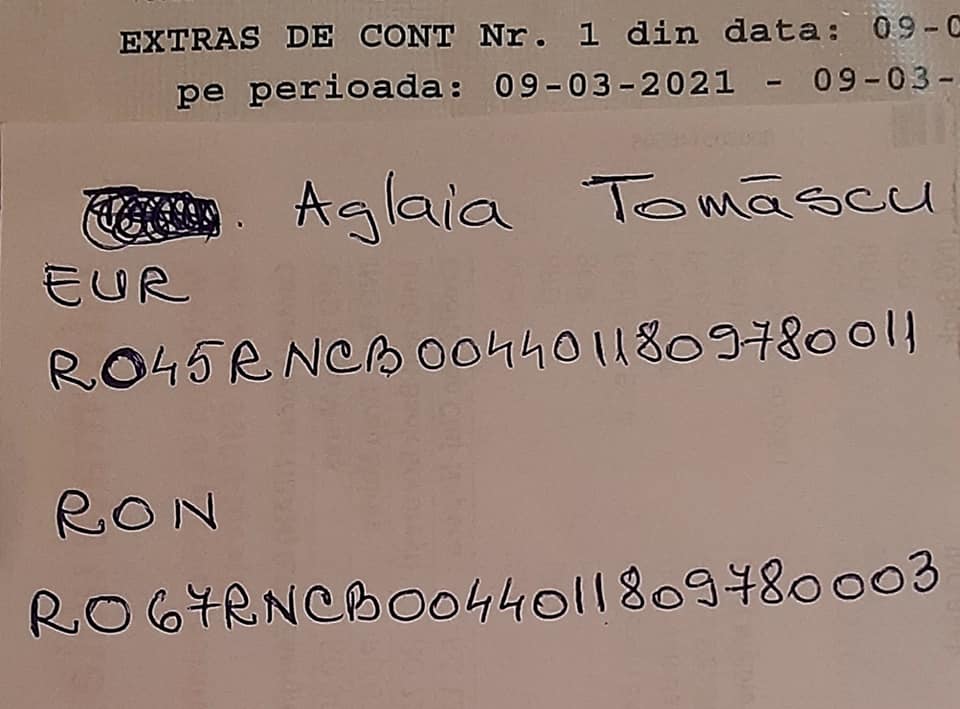 EXTRAS DE CONT Nr. 1 din data: 09-0
pe perioada: 09-03-2021 - 09-03-
. Aglaia Tomăscu
EUR
RO45RNCB0044011809780011
RON
RO67RNCB0044011809780003